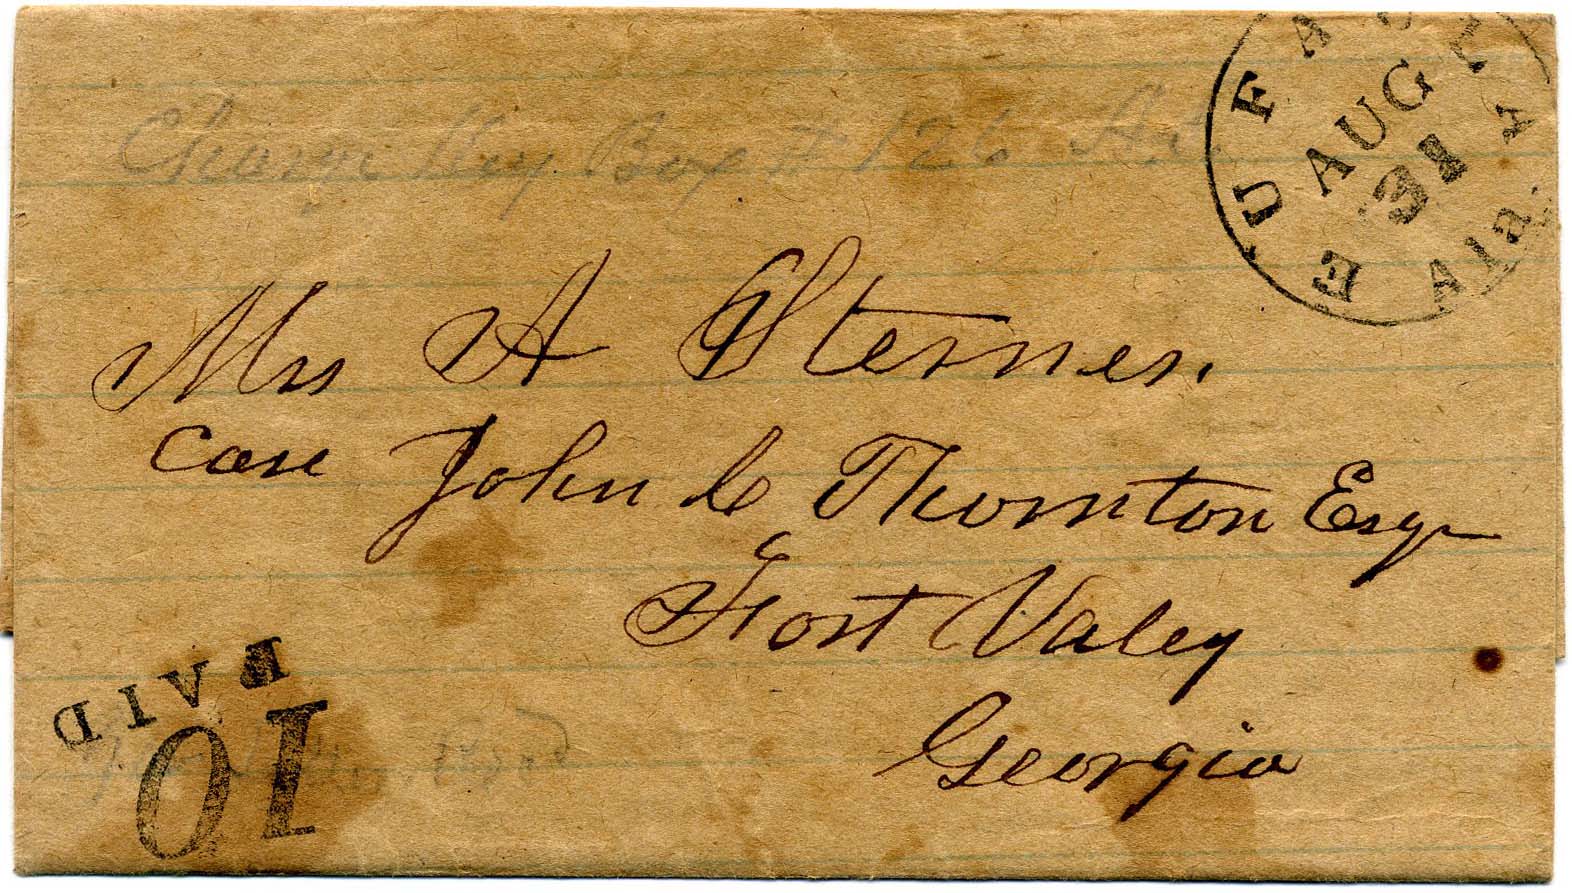 EUFAULA Ala.
AUG
31
Charge Key Box # 126
Mrs A Sterner.
Care John C Thornton Esqr
Fort Valey
Georgia
PAID
10